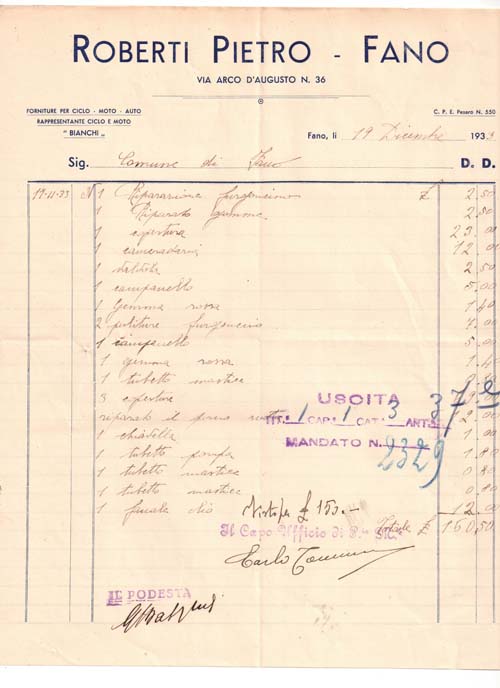 ROBERTI PIETRO - FANO
VIA ARCO D'AUGUSTO N. 36
FORNITURE PER CICLO - MOTO - AUTO
RAPPRESENTANTE CICLO E MOTO
" BIANCHI "
C. P. E. Pesaro N. 550
Fano, li 19 Dicembre 1933
Sig. Comune di Fano D. D.
19-11-33 N 1 Riparazione furgoncino £ 2,50
1 Riparato gomma 2,50
1 copertura 23,00
1 cameradaria 12,00
1 2,50
1 campanello 5,00
1 gemma rossa 1,40
2 puliture furgoncino
1 campanello 5,00
1 gemma rossa 1,4
1 tubetto mastice
3 coperture
riparato il freno 2,00
1 chiavella 1,00
1 tubetto pompa 1,80
1 tubetto mastice 0,80
1 tubetto mastice 0,80
1 fanale olio 12,00
USCITA 37 e
TIT. 1 CAP. 1 CAT. 3 ART.
MANDATO N. 2329
Visto per £ 153.-
Totale £ 160,50
Il Capo Ufficio di
Carlo
IL PODESTA